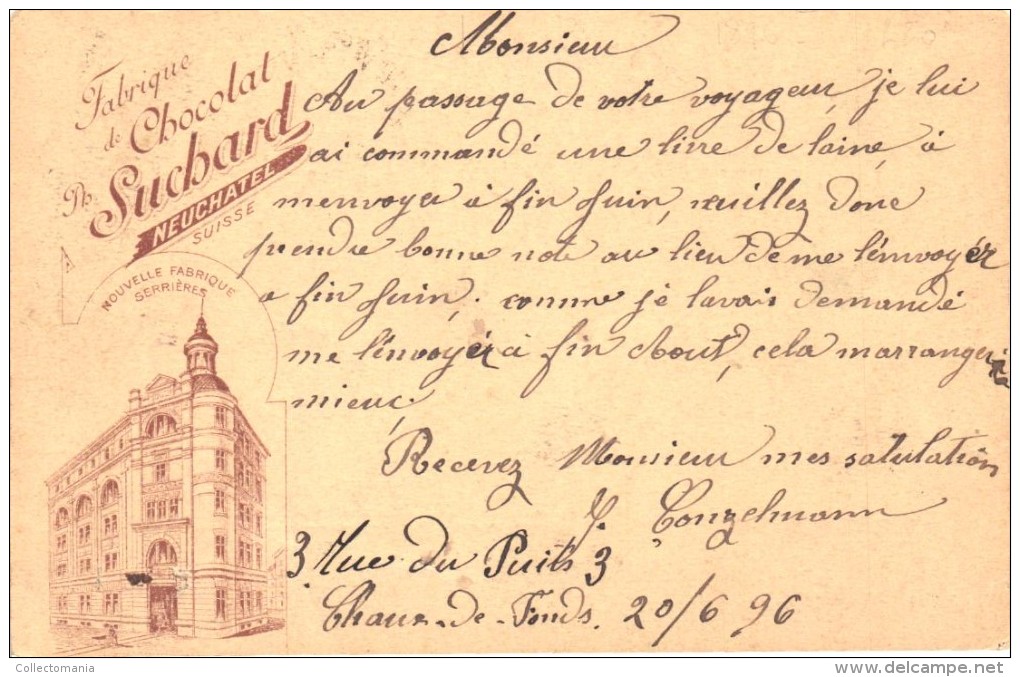 Fabrique
de Chocolat
Ph. Suchard
NEUCHATEL
SUISSE
NOUVELLE FABRIQUE
SERRIÈRES
Monsieur
Au passage de votre voyageur, je lui
ai commandé une livre de laine, à
menvoyer à fin Juin, veuillez donc
prendre bonne note au lieu de me l'envoyér
a fin Juin, comme je lavais demandé
me l'envoyér à fin Aout, cela marrangera
mieux,
Recevez Monsieur mes salutation
Conzelmann
3 Rue du Puits 3
Chaux-de-Fonds. 20/6 96
Collectomania
https://www.delcampe.net